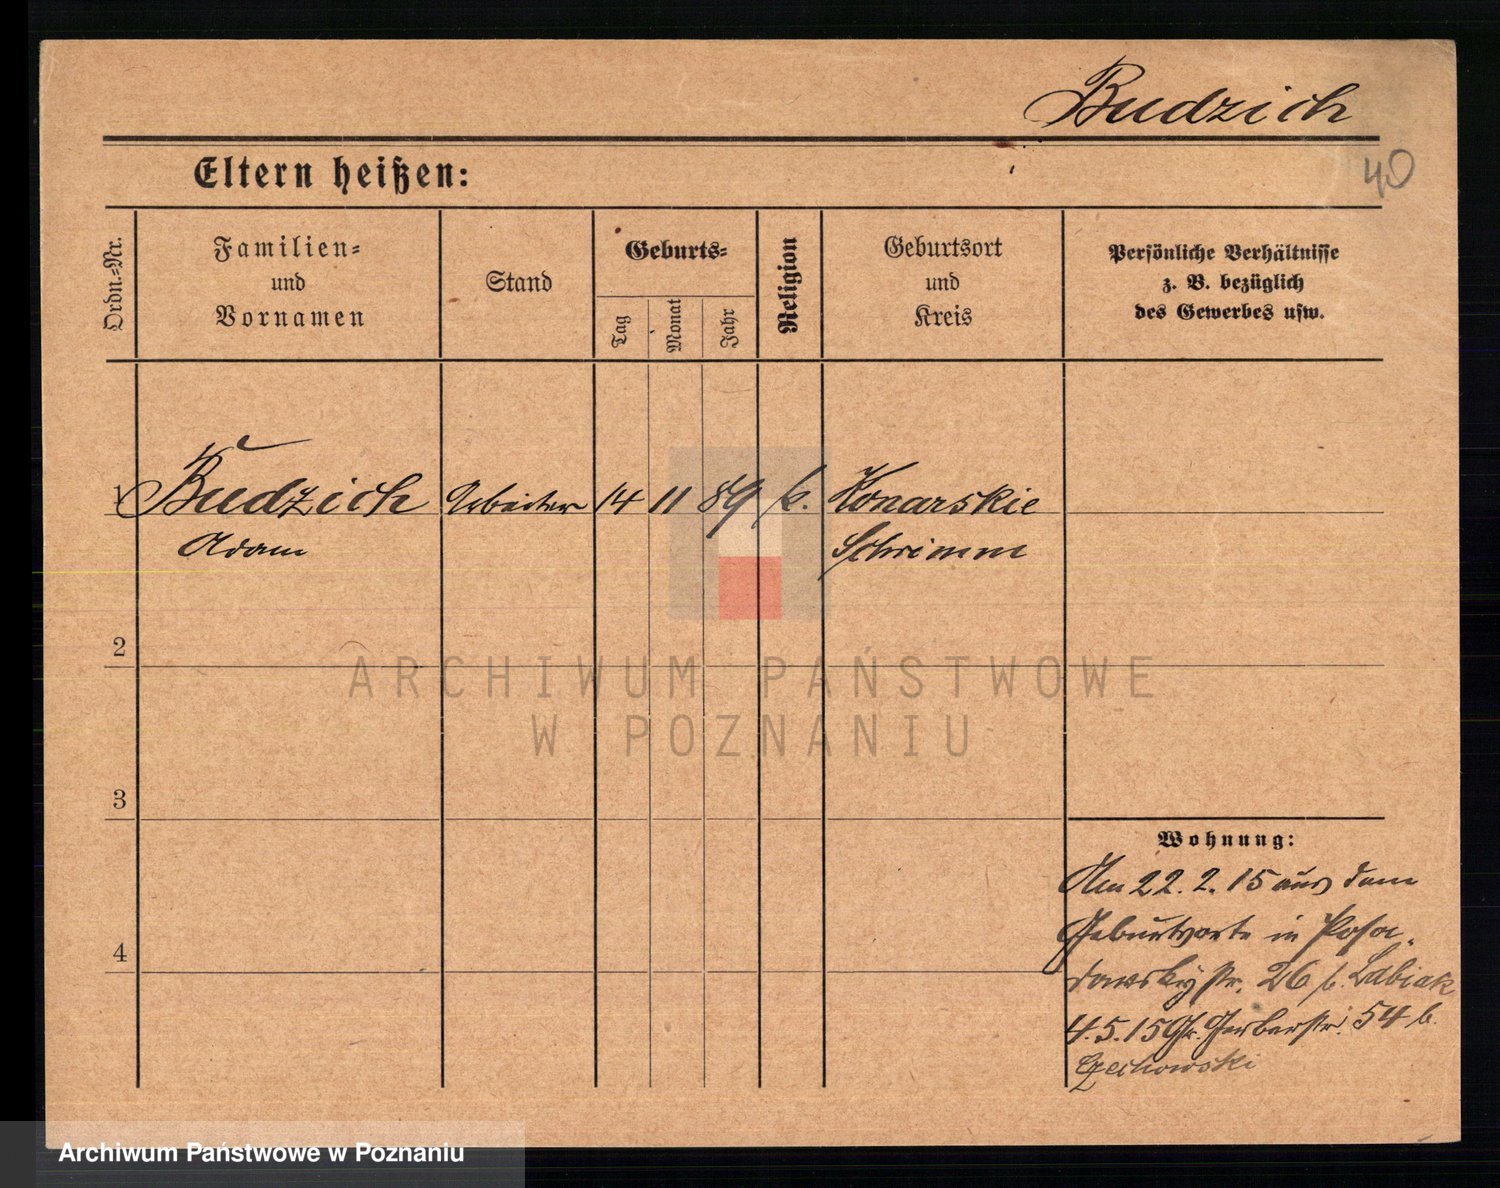 Budzich
40
Eltern heißen:
Ordn.-Nr.
Familien-
und
Vornamen
Stand
Geburts-
Tag
Monat
Jahr
Religion
Geburtsort
und
Kreis
Persönliche Verhältnisse
z. B. bezüglich
des Gewerbes usw.
1 Budzich Arbeiter 14 11 89 k. Konarskie
Adam Schrimm
2
3
4
Wohnung:
Am 22. 2. 15 aus dem
Geburtsorte in Posa-
dowskystr. 26 b. Labiak
4. 5. 15 Gr. Gerberstr. 54 b.
Czechowski
ARCHIWUM PAŃSTWOWE
W POZNANIU
Archiwum Państwowe w Poznaniu